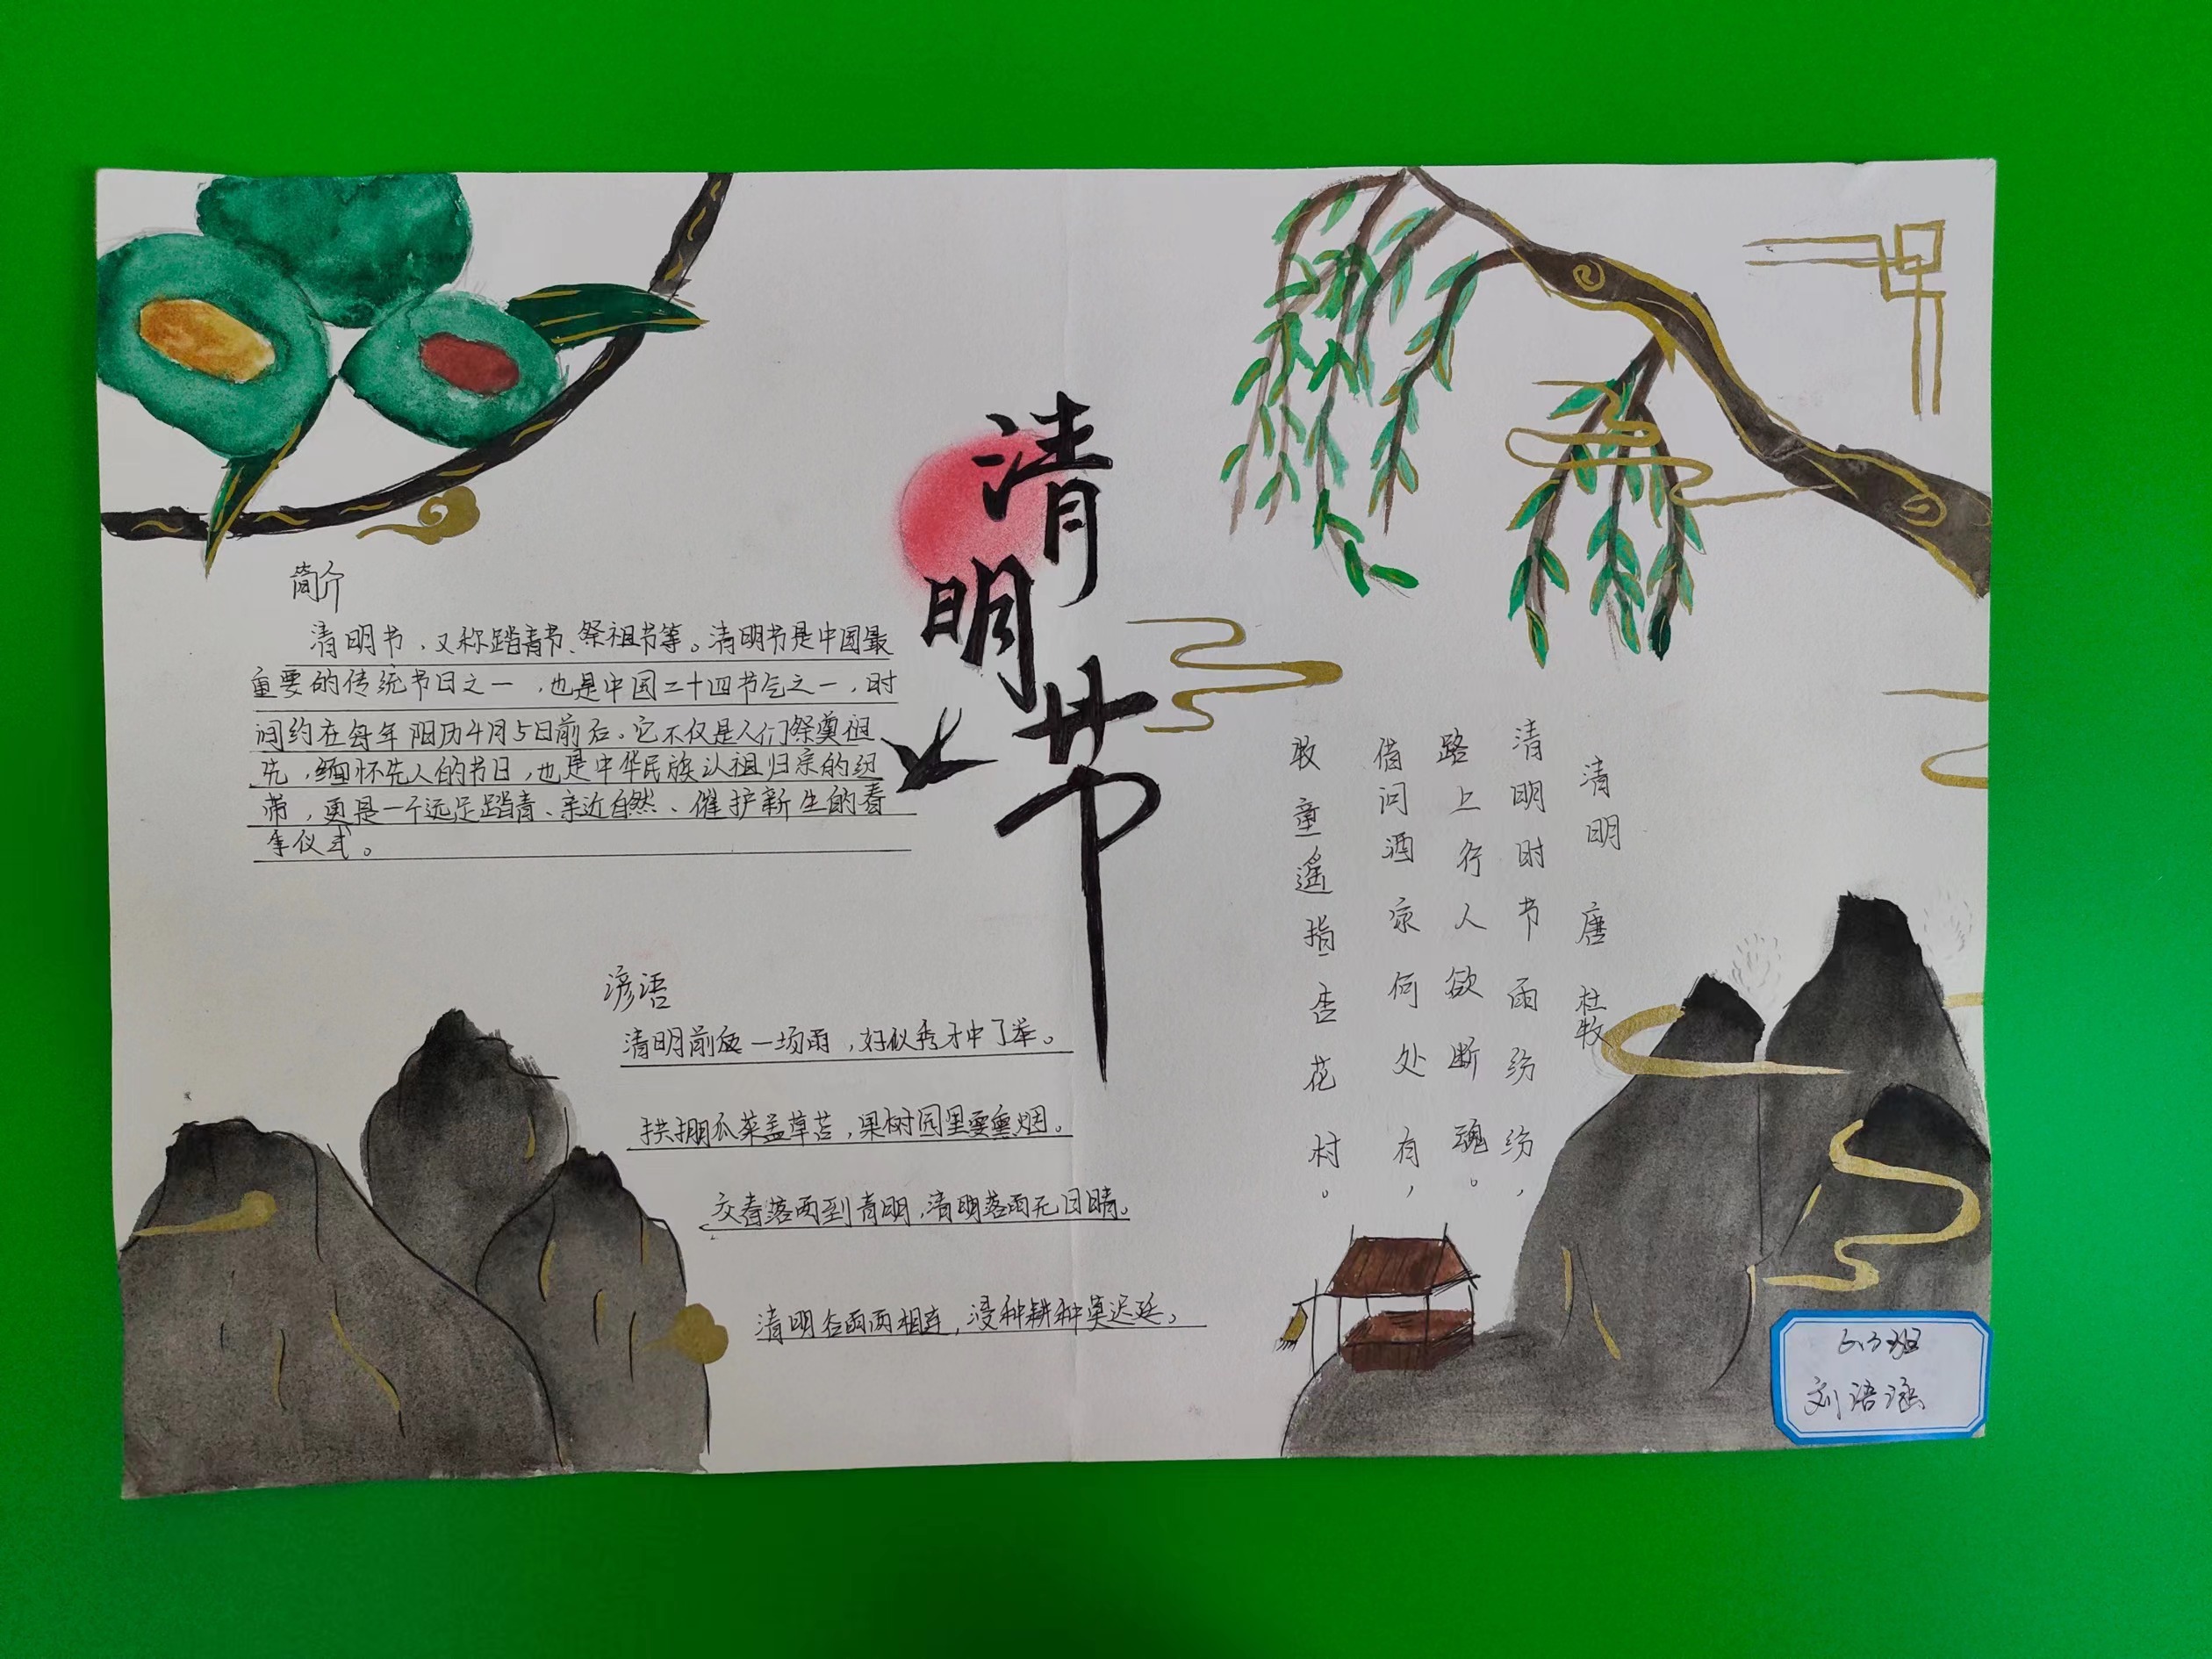 清明节
简介
清明节，又称踏青节、祭祖节等。清明节是中国最
重要的传统节日之一，也是中国二十四节气之一，时
间约在每年阳历4月5日前后。它不仅是人们祭奠祖
先，缅怀先人的节日，也是中华民族认祖归宗的纽
带，更是一个远足踏青、亲近自然、催护新生的春
季仪式。
谚语
清明前后一场雨，好似秀才中了举。
拱棚瓜菜盖草苫，果树园里要熏烟。
交春落雨到青明，清明落雨无日晴。
清明谷雨两相连，浸种耕种莫迟延。
清明 唐 杜牧
清明时节雨纷纷，
路上行人欲断魂。
借问酒家何处有，
牧童遥指杏花村。
班
刘语涵